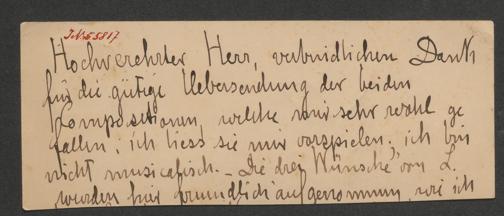 J.N. 55817
Hochverehrter Herr, verbindlichen Dank
für die gütige Uebersendung der beiden
Compositionen, welche mir sehr wohl ge
fallen; ich liess sie mir vorspielen. ich bin
nicht musicalisch. – „Die drei Wünsche" von L.
wurden hier freundlich aufgenommen, wie ich